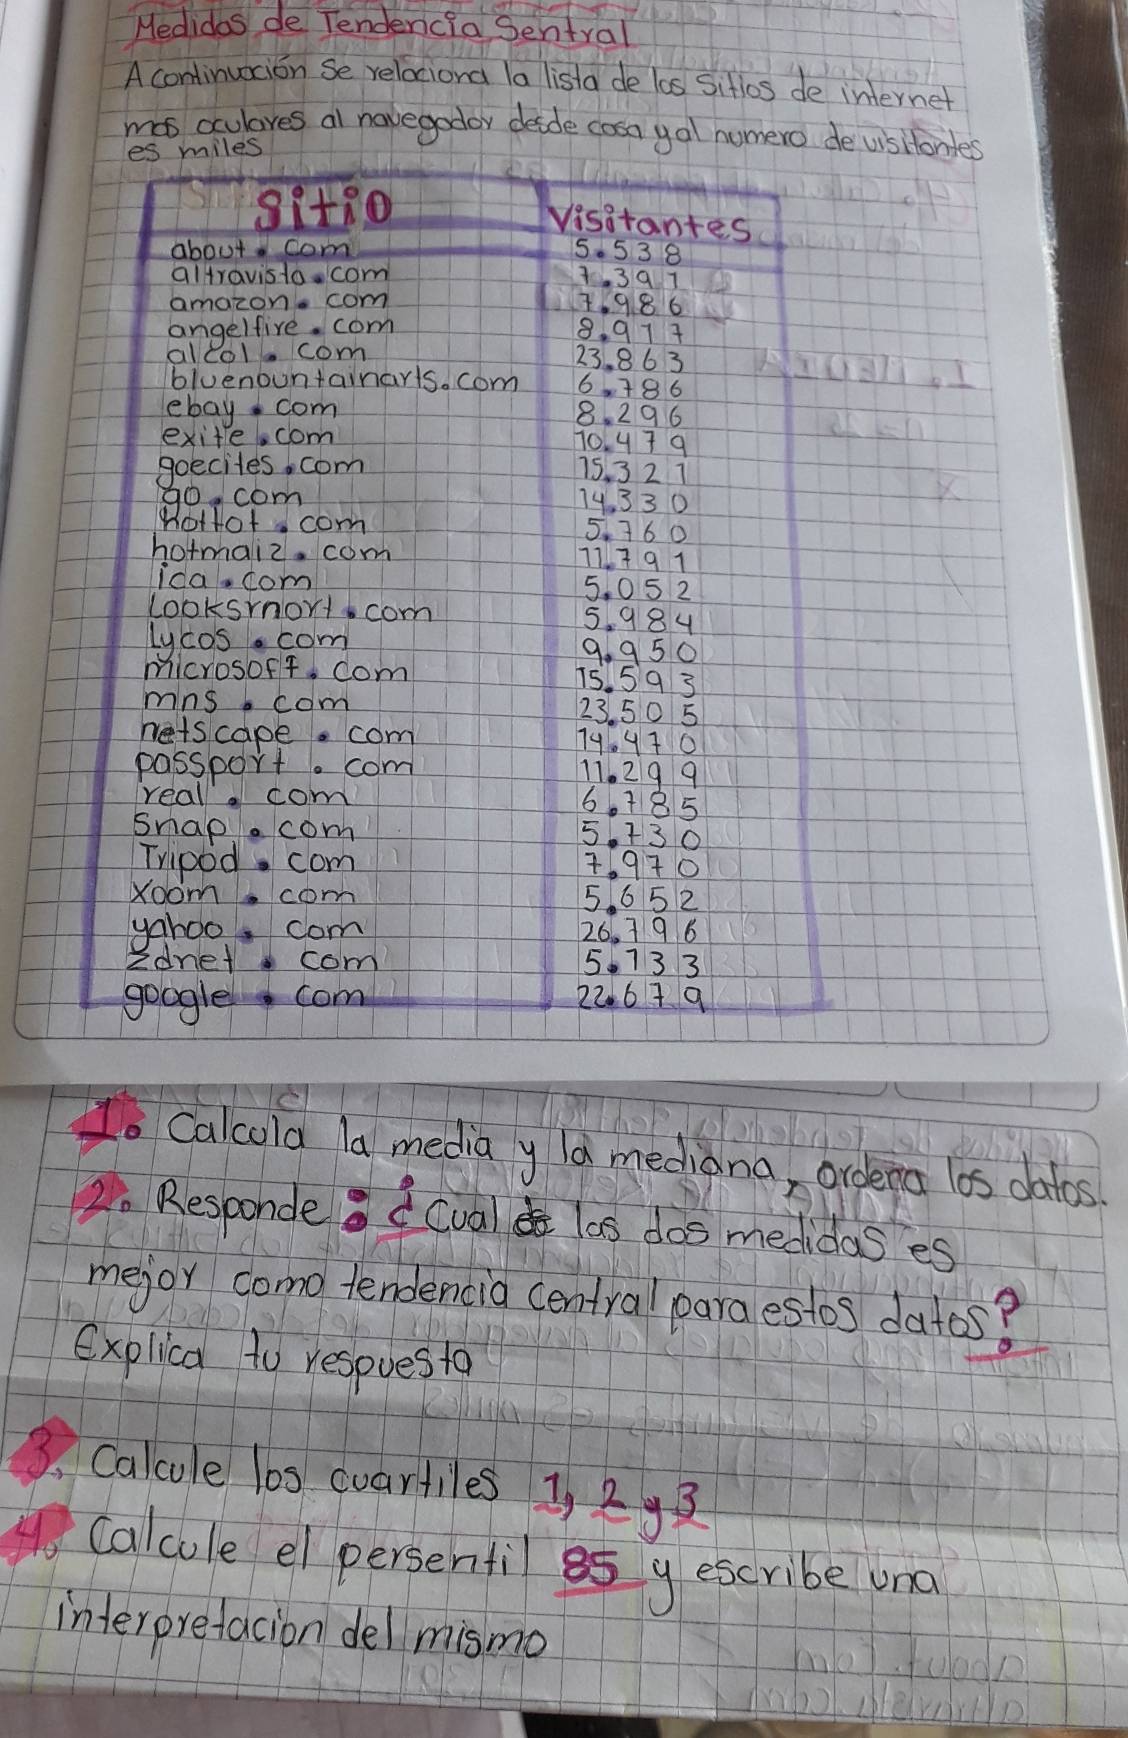 Medidas de Tendencia Sentral
A continuación se relaciona la lista de los Sitios de internet
mas oculares al navegador desde casa y al numero de visitantes
es miles
Sitio Visitantes
about.com 5.538
altravista.com 7.391
amazon.com 7.986
angelfire.com 8.917
alcol.com 23.863
bluenountainarts.com 6.786
ebay.com 8.296
exite.com 10.479
goecites.com 15.321
go.com 14.330
Hottot.com 5.760
hotmai2.com 11.791
ida.com 5.052
Looksrnort.com 5.984
Lycos.com 9.950
microsoft.com 15.593
mns.com 23.505
netscape.com 14.470
passport.com 11.299
real.com 6.785
Snap.com 5.730
Tripod.com 7.970
xoom.com 5.652
yahoo.com 26.796
zdnet.com 5.133
google.com 22.679
1. Calcula la media y la mediana, ordena los datos.
2. Responde: ¿Cual las dos medidas es
mejor como tendencia central para estos datos?
Explica tu respuesta
3. Calcule los cuartiles 1, 2 y 3
4. Calcule el persentil 85 y escribe una
interpretacion del mismo